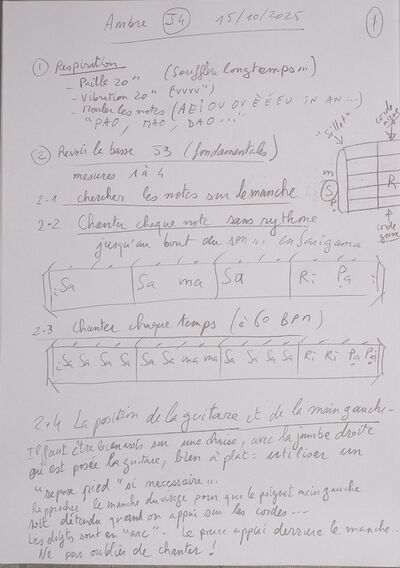 Ambre J4 15/10/2025
1
① Respiration
- Paille 20" (Souffler longtemps...)
- Vibration 20" (vvvv")
- Mouler les notes (A E I O U OU È É EU IN AN ...)
"PAO, MAO, DAO..."
② Revoir la basse J3 (fondamentales)
mesures 1 à 4
2-1 chercher les notes sur le manche
2-2 Chanter chaque note sans rythme
jusqu'au bout du son... en Sarigama
"Sillet"
corde aigue
m
S
P
R
corde grave
Sa Sa ma Sa Ri Pa
2.3 Chanter chaque temps (à 60 BPM)
Sa Sa Sa Sa Sa Sa ma ma Sa Sa Sa Sa Ri Ri Pa Pa
2.4 La position de la guitare et de la main gauche -
Il faut être bien assis sur une chaise, avec la jambe droite
où est posée la guitare, bien à plat = utiliser un
"repose pied" si necessaire...
Rapprocher le manche du visage pour que le poignet main gauche
soit détendu quand on appuie sur les cordes ---
Les doigts sont en "arc" - Le pouce appui derriere le manche...
Ne pas oublier de chanter !